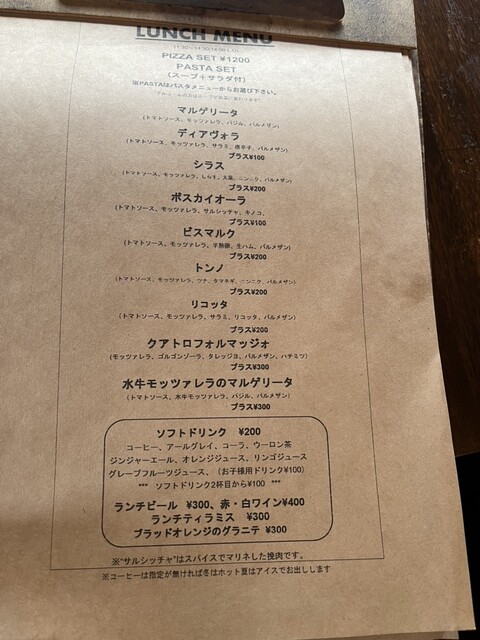 LUNCH MENU
PIZZA SET ¥1200
PASTA SET
(スープ＋サラダ付)
※PASTAはパスタメニューからお選び下さい。
マルゲリータ
(トマトソース、モッツァレラ、バジル、パルメザン)
ディアヴォラ
(トマトソース、モッツァレラ、サラミ、唐辛子、パルメザン)
プラス¥100
シラス
(トマトソース、モッツァレラ、しらす、大葉、ニンニク、パルメザン)
プラス¥200
ボスカイオーラ
(トマトソース、モッツァレラ、サルシッチャ、キノコ、
プラス¥100
ビスマルク
(トマトソース、モッツァレラ、半熟卵、生ハム、パルメザン)
プラス¥200
トンノ
(トマトソース、モッツァレラ、ツナ、タマネギ、ニンニク、パルメザン)
プラス¥200
リコッタ
(トマトソース、モッツァレラ、サラミ、リコッタ、パルメザン)
プラス¥200
クアトロフォルマッジォ
(モッツァレラ、ゴルゴンゾーラ、タレッジョ、パルメザン、ハチミツ)
プラス¥300
水牛モッツァレラのマルゲリータ
(トマトソース、水牛モッツァレラ、バジル、パルメザン)
プラス¥300
ソフトドリンク ¥200
コーヒー、アールグレイ、コーラ、ウーロン茶
ジンジャーエール、オレンジジュース、リンゴジュース
グレープフルーツジュース、(お子様用ドリンク¥100)
*** ソフトドリンク2杯目から¥100 ***
ランチビール ¥300、赤・白ワイン¥400
ランチティラミス ¥300
ブラッドオレンジのグラニテ ¥300
※"サルシッチャ"はスパイスでマリネした挽肉です。
※コーヒーは指定が無ければ冬はホット夏はアイスでお出しします